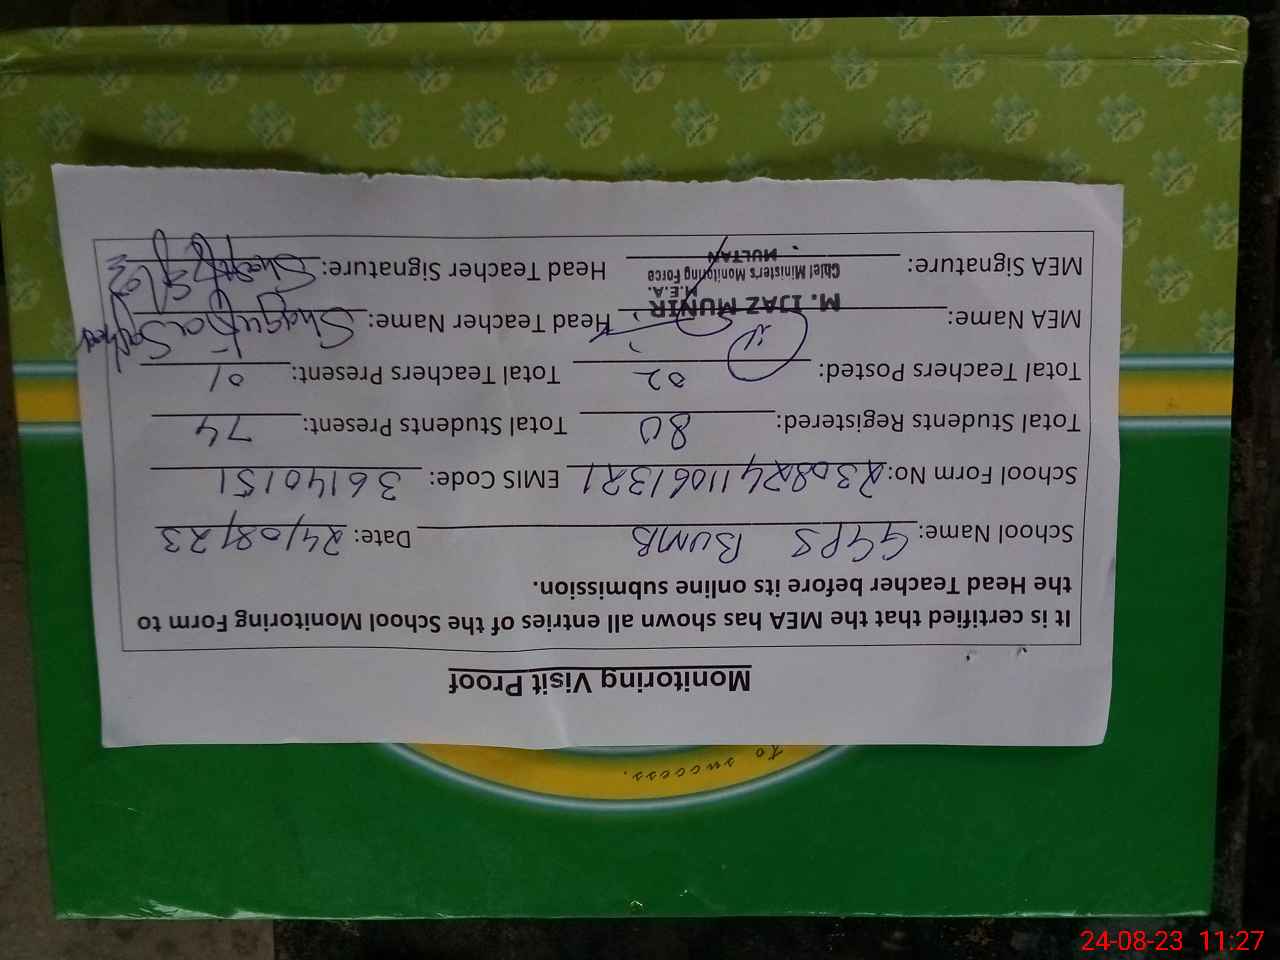 Monitoring Visit Proof
It is certified that the MEA has shown all entries of the School Monitoring Form to
the Head Teacher before its online submission.
School Name: GGPS BUMB Date: 24/08/23
School Form No: 23082411061321 EMIS Code: 36140151
Total Students Registered: 80 Total Students Present: 74
Total Teachers Posted: 02 Total Teachers Present: 01
MEA Name: M. IJAZ MUNIR Head Teacher Name: Shagufta
M.E.A.
Chief Minister's Monitoring Force
MULTAN
MEA Signature: Head Teacher Signature:
to success.
24-08-23 11:27